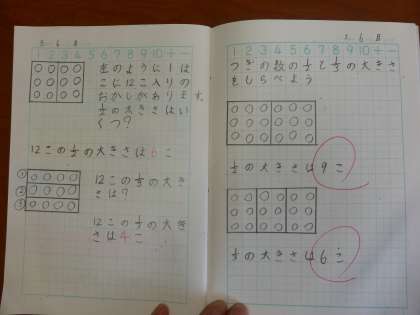 2 6 8
1 2 3 4 5 6 7 8 9 10 + -
左のように1は
こに12こ入りの
おかしがあります。
1/2の大きさはい
くつ?
12この1/2の大きさは6こ
①
②
③
12この1/3の大き
さは?
12この1/3の大き
さは4こ
2 6 8
1 2 3 4 5 6 7 8 9 10 + -
つぎの数の1/2と1/3の大きさ
をしらべよう
1/2の大きさは9こ
1/3の大きさは6こ